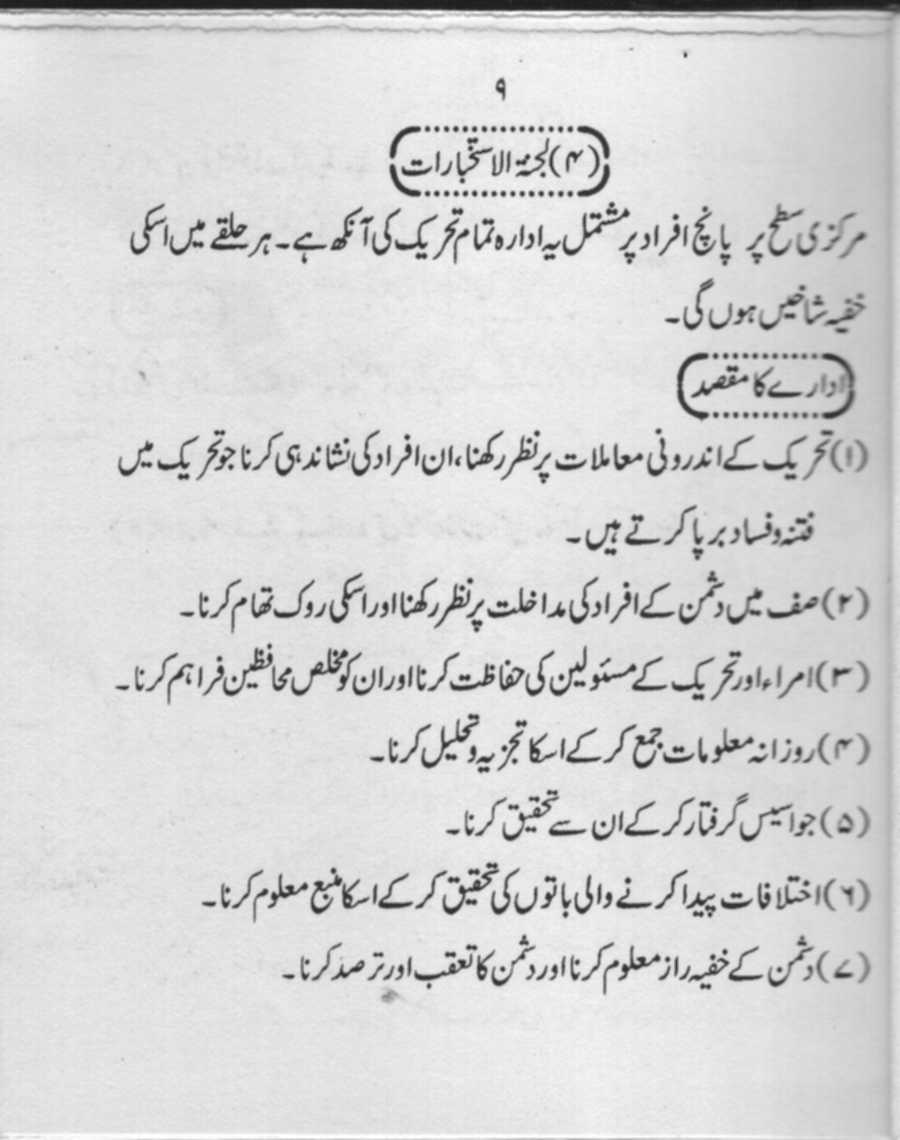 ۹
(۴) لجنۃ الاستخبارات
مرکزی سطح پر پانچ افراد پر مشتمل یہ ادارہ تمام تحریک کی آنکھ ہے۔ ہر حلقے میں اسکی
خفیہ شاخیں ہوں گی۔
ادارے کا مقصد
(۱) تحریک کے اندرونی معاملات پر نظر رکھنا، ان افراد کی نشاندہی کرنا جو تحریک میں
فتنہ و فساد برپا کرتے ہیں۔
(۲) صف میں دشمن کے افراد کی مداخلت پر نظر رکھنا اور اسکی روک تھام کرنا۔
(۳) امراء اور تحریک کے مسئولین کی حفاظت کرنا اور ان کو مخلص محافظین فراہم کرنا۔
(۴) روزانہ معلومات جمع کر کے اسکا تجزیہ و تحلیل کرنا۔
(۵) جواسیس گرفتار کر کے ان سے تحقیق کرنا۔
(۶) اختلافات پیدا کرنے والی باتوں کی تحقیق کر کے اسکا منبع معلوم کرنا۔
(۷) دشمن کے خفیہ راز معلوم کرنا اور دشمن کا تعقب اور ترصد کرنا۔